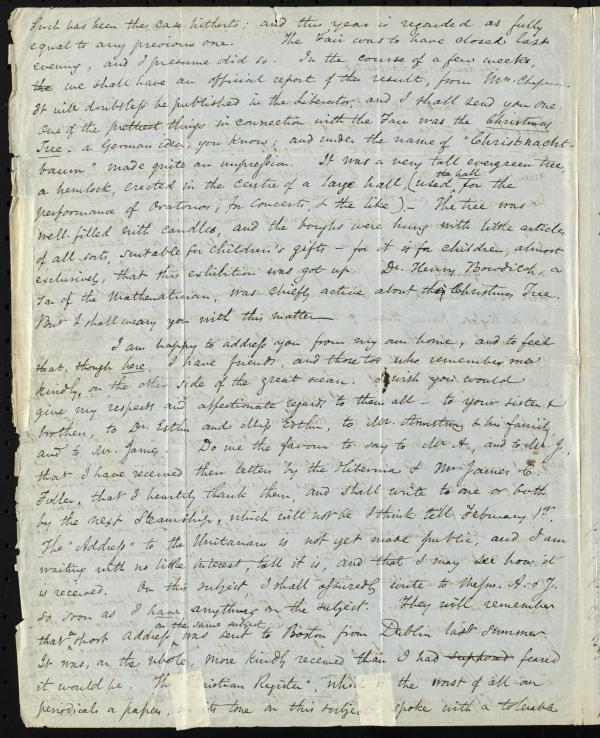 Such has been the case hitherto; and this year is regarded as fully
equal to any previous one. The Fair was to have closed last
evening, and I presume did so. In the course of a few weeks,
the we shall have an official report of the result, from Mrs. Chapman.
It will doubtless be published in the Liberator, and I shall send you one.
One of the prettiest things in connection with the Fair was the Christmas
Tree - a German idea, you know; and under the name of "Christ-nacht-
baum" made quite an impression. It was a very tall evergreen tree,
a hemlock, erected in the centre of a large hall (the hall used for the
performance of Oratorios, for Concerts, & the like). - The tree was
well-filled with candles, and the boughs were hung with little articles
of all sorts, suitable for children's gifts - for it is for children, almost
exclusively, that this exhibition was got up. Dr. Henry Bowditch, a
son of the Mathematician, was chiefly active about the Christmas Tree.
But I shall weary you with this matter
I am happy to address you from my own home, and to feel
that, though here, I have friends, and those too who remember me
kindly, on the other side of the great ocean. I wish you would
give my respects and affectionate regards to them all - to your sister &
brothers, to Dr. Estlin and Miss Estlin, to Mr. Armstrong & his family,
and to Mr. James. Do me the favour to say to Mr A., and to Mr. J,
that I have received their letters by the Hibernia & Mr James C.
Fuller, that I heartily thank them, and shall write to one or both
by the next Steamship, which will not be I think till February 1st.
The "Address" to the Unitarians is not yet made public, and I am
waiting with no little interest, till it is, and that I may see how it
is received. On this subject, I shall assuredly write to Messrs. A. & J.
so soon as I have anything on the subject. They will remember
that a short Address on the same subject was sent to Boston from Dublin last summer.
It was, on the whole, more kindly received than I had supposed feared
it would be. The "Christian Register", which is the worst of all our
periodicals & papers, in its tone on this subject spoke with a tolerable